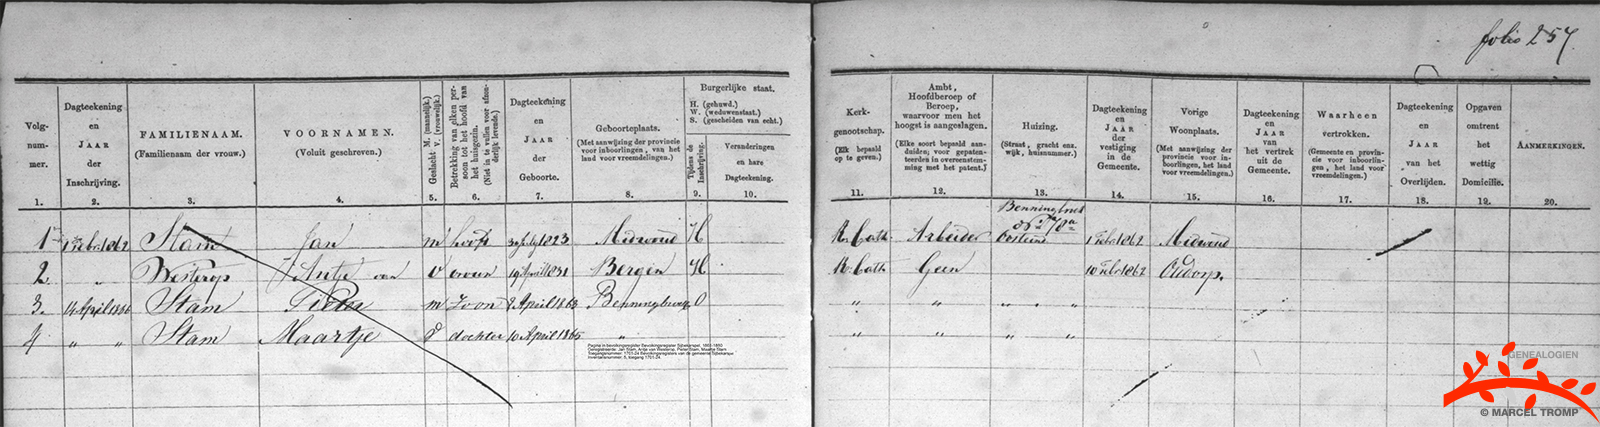 folio 257.
Volg-
num-
mer.
1.
Dagteekening
en
JAAR
der
Inschrijving.
2.
FAMILIENAAM.
(Familienaam der vrouw.)
3.
VOORNAMEN.
(Voluit geschreven.)
4.
Geslacht M. (mannelijk.)
V. (vrouwelijk.)
5.
Betrekking van elken per-
soon tot het hoofd van
het huisgezin.
(Niet in te vullen voor afzon-
derlijk levende.)
6.
Dagteekening
en
JAAR
der
Geboorte.
7.
Geboorteplaats.
(Met aanwijzing der provincie
voor inboorlingen, van het
land voor vreemdelingen.)
8.
Burgerlijke staat.
H. (gehuwd.)
W. (weduwenstaat.)
S. (gescheiden van echt.)
Tijdens de
Inschrijving.
9.
Veranderingen
en hare
Dagteekening.
10.
Kerk-
genootschap.
(Elk bepald
op te geven.)
11.
Ambt,
Hoofdberoep of
Beroep,
waarvoor men het
hoogst is aangeslagen.
(Elke soort bepald aan-
duiden; voor gepaten-
teerden in overeenstem-
ming met het patent.)
12.
Huizing.
(Straat, gracht enz.
wijk, huisnummer.)
13.
Dagteekening
en
JAAR
der
vestiging
in de
Gemeente.
14.
Vorige
Woonplaats.
(Met aanwijzing der
provincie voor in-
boorlingen, het land
voor vreemdelingen.)
15.
Dagteekening
en
JAAR
van
het vertrek
uit de
Gemeente.
16.
Waarheen
vertrokken.
(Gemeente en provin-
cie voor inboorlin-
gen, het land voor
vreemdelingen.)
17.
Dagteekening
en
JAAR
van het
Overlijden.
18.
Opgaven
omtrent
het
wettig
Domicilie.
19.
AANMERKINGEN.
20.
1 1 Febr. 1862 Stam Jan m hoofd July 1823 Midwoud H R. Cath. Arbeider Oosteind 1 Febr. 1862 Midwoud
2. " Westerop Antje van v vrouw 19 April 1831 Bergen H R. Cath. Geen 10 Febr. 1862 Oudorp.
3. 14 April 1866 Stam Pieter m Zoon 2 April 1863 Benningbroek O " " " " " "
4 " " Stam Maartje d dochter 10 April 1865 " " " " "
Pagina in bevolkingsregister Bevolkingsregister Sijbekarspel, 1862-1880
Geregistreerde: Jan Stam, Antje van Westerop, Pieter Stam, Maartje Stam
Toegangsnummer: 1701-24 Bevolkingsregisters van de gemeente Sijbekarspel
Inventarisnummer: 5, toegang 1701-24.
GENEALOGIEN
© MARCEL TROMP